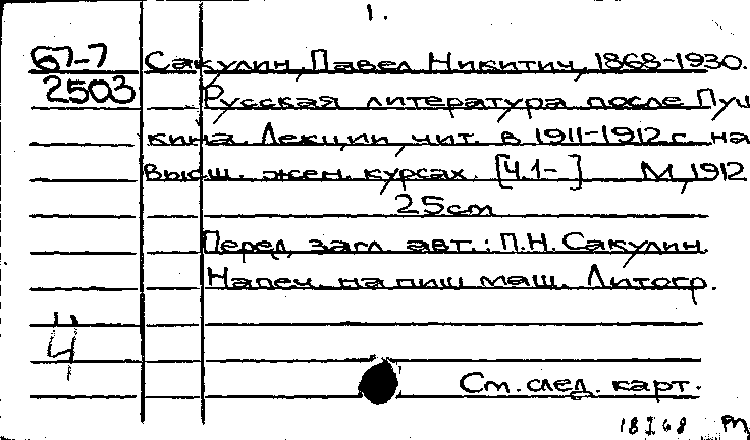 1.
67-7 Сакулин, Павел Никитич, 1868-1930.
2503 Русская литература после Пуш
кина. Лекции, чит. в 1911-1912 г. на
Высш. жен. курсах. [Ч.1- ] М, 1912
25cm
Перед загл. авт.: П.Н. Сакулин.
Напеч. на пиш. маш. Литогр.
Ч
См. след. карт.
18 I 68